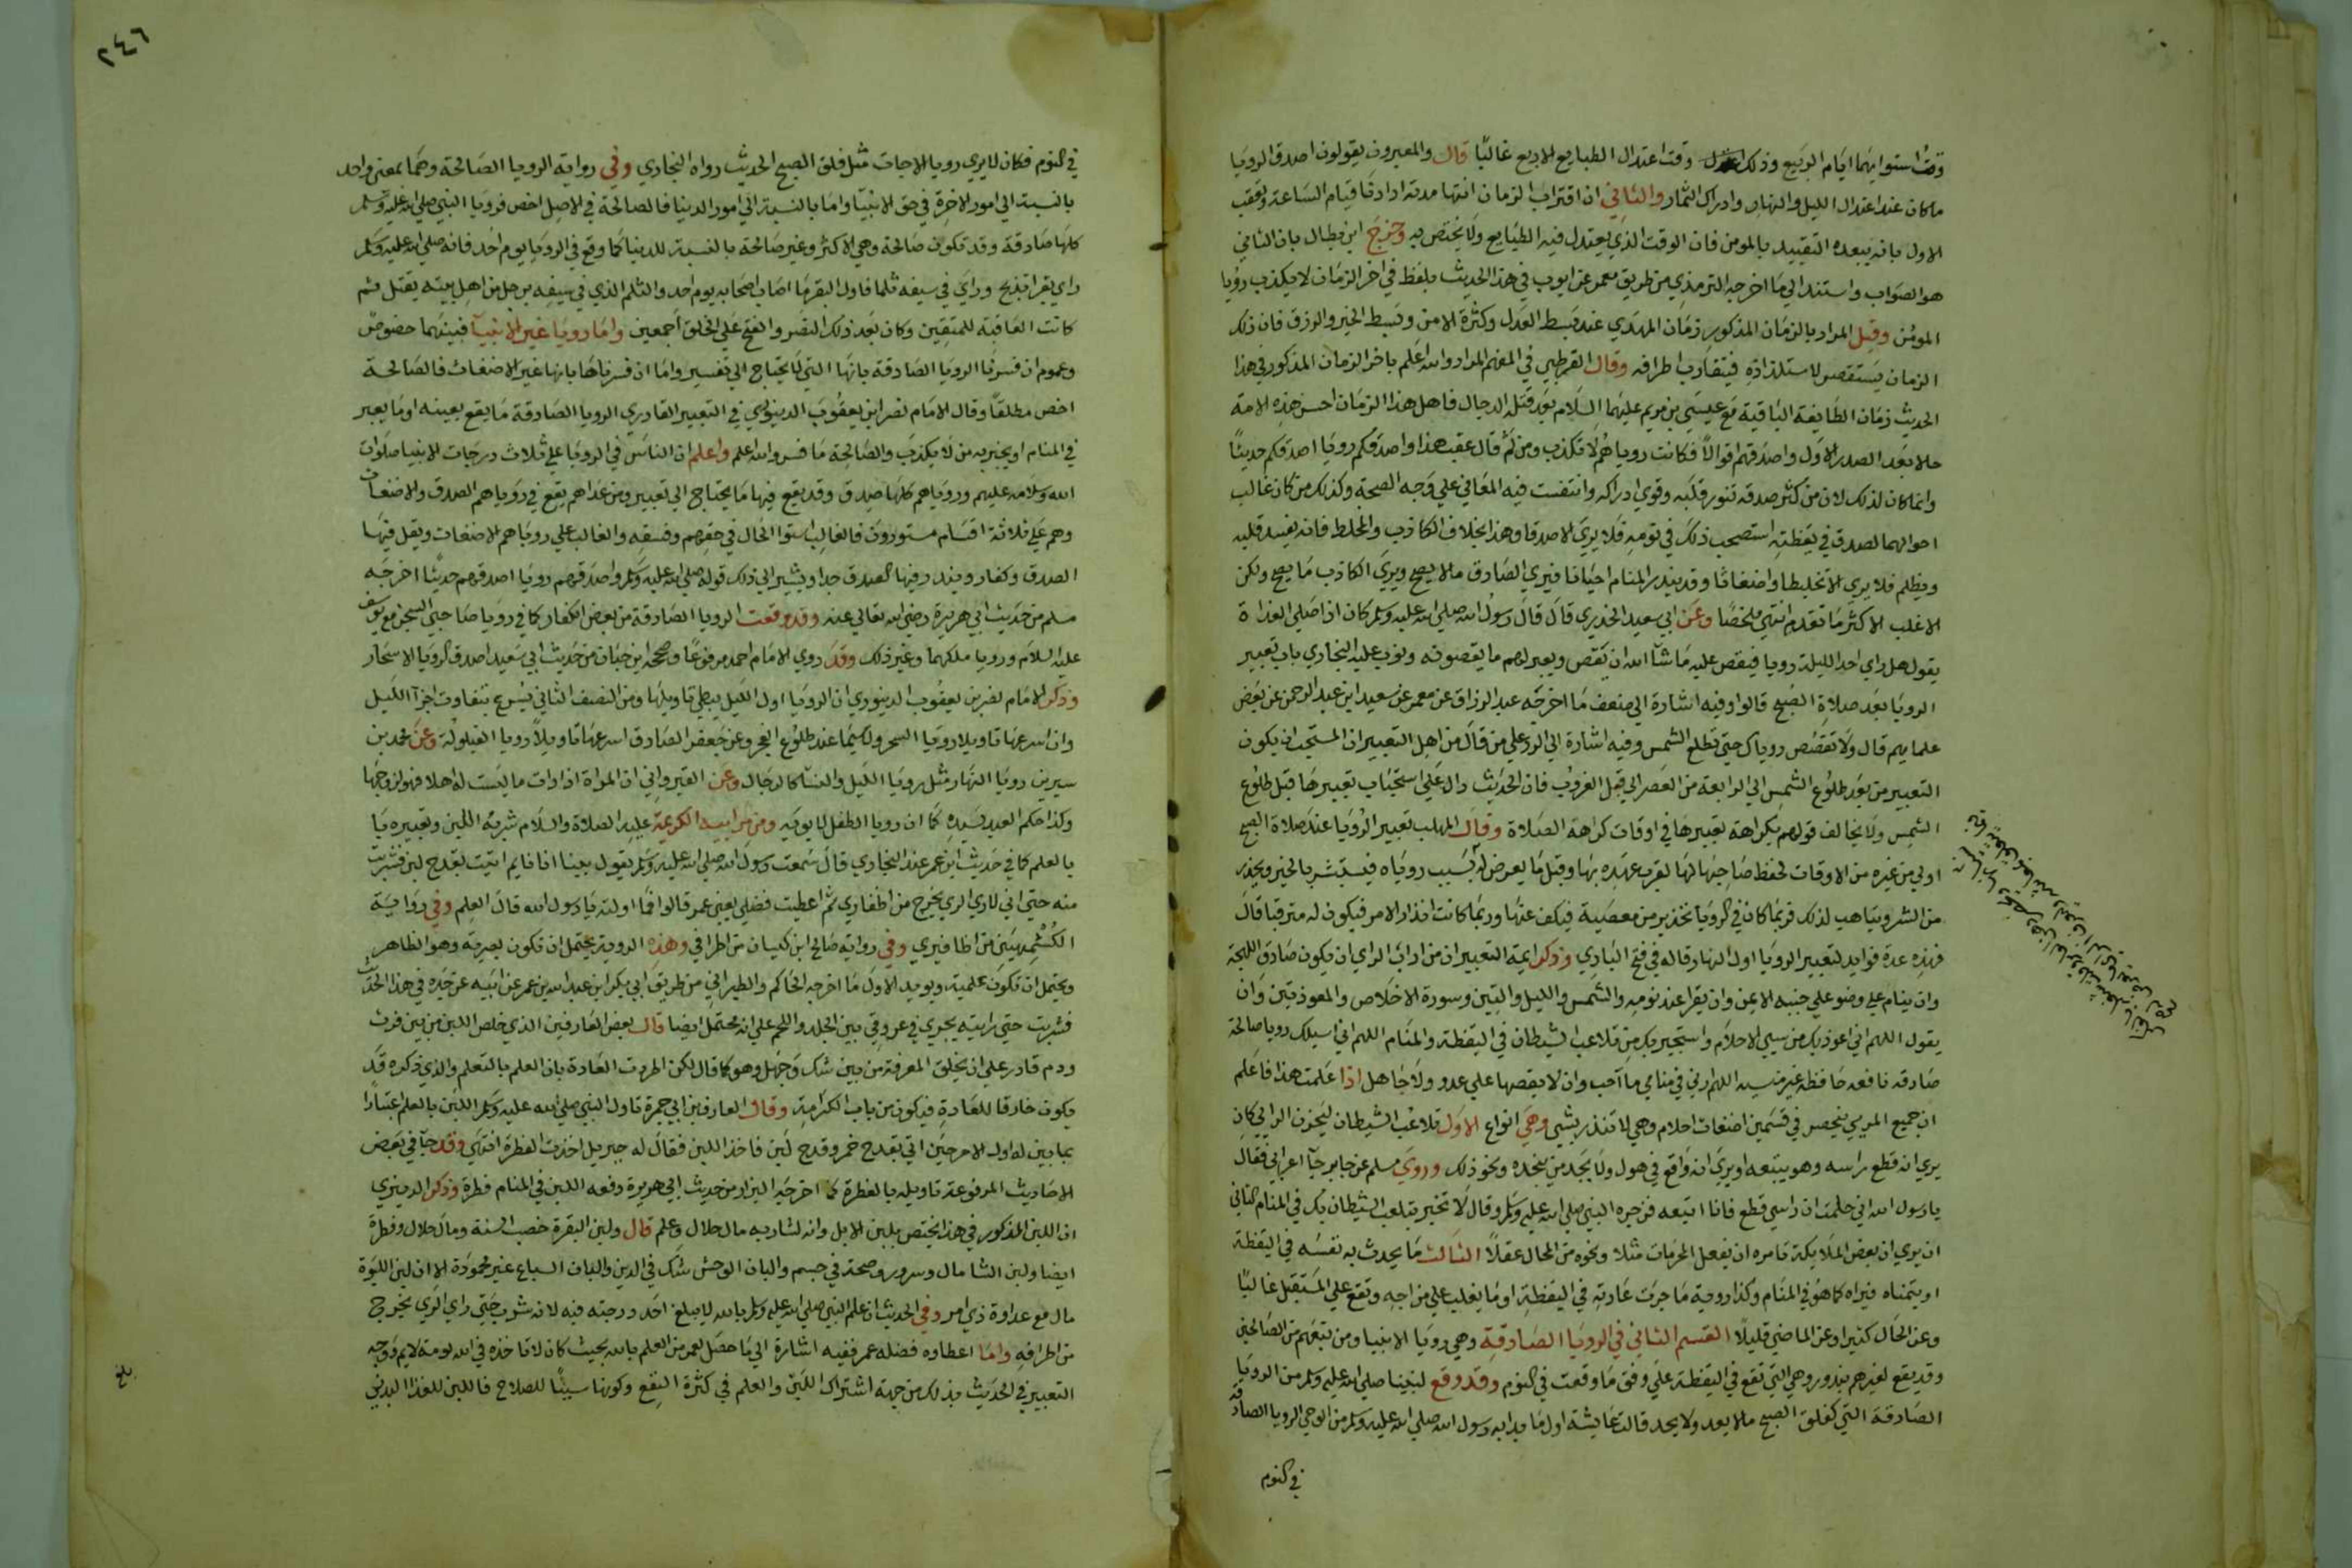 وقت استوايهما ايام الربيع وذلك وقت اعتدال الطبايع الاربع غالبًا قال والمعبرون يقولون اصدق الرويا
ماكان عند اعتدال الليل والنهار وادراك الثمار والثاني ان اقتراب الزمان انتها مدته اذا دنا قيام الساعة وتعقب
الاول بانه يبعده التقييد بالمومن فان الوقت الذي يعتدل فيه الطبايع لا يختص به وجزم ابن بطال بان الثاني
هو الصواب واستند الي ما اخرجه الترمذي من طريق معمر عن ايوب في هذا الحديث بلفظ في اخر الزمان لا يكذب رويا
المومن وقيل المراد بالزمان المذكور زمان المهدي عند بسط العدل وكثرة الامن وبسط الخير والرزق فان ذلك
الزمان يستقصر لاستلذاذه فيتقارب اطرافه وقال القرطبي في المفهم المراد والله اعلم باخر الزمان المذكور في هذا
الحديث زمان الطايفة الباقية مع عيسي بن مريم عليهما السلام بعد قتله الدجال فاهل هذا الزمان احسن هذه الامة
حالا بعد الصدر الاول واصدقهم اقوالاً فكانت روياهم لا تكذب ومن ثم قال عقب هذا واصدقكم رويا اصدقكم حديثًا
وانما كان لذلك لان من كثر صدقه تنور قلبه وقوي ادراكه وانتقشت فيه المعاني علي وجه الصحة وكذلك من كان غالب
احواله الصدق في يقظته استصحب ذلك في نومه فلا يري الا صدقا وهذا بخلاف الكاذب والمخلط فانه يفسد قلبه
ويظلم فلا يري الا تخليطا واضغاثا وقد يندر المنام احيانا فيري الصادق مالا يصح ويري الكاذب ما يصح ولكن
الاغلب الاكثر ما تقدم انتهي ملخصًا وعن ابي سعيد الخدري قال قال رسول الله صلي الله عليه وسلم كان اذا صلي الغداة
يقول هل راي احد الليلة رويا فيقص عليه ما شآ الله ان يقص ويعبر لهم ما يقصونه وبوب عليه البخاري باب تعبير
الرويا بعد صلاة الصبح قالوا وفيه اشارة الي ضعف ما اخرجه عبد الرزاق عن معمر عن سعيد ابن عبد الرحمن عن بعض
علمايهم قال ولا تقصص روياك حتي تطلع الشمس وفيه اشارة الي الرد علي من قال من اهل التعبير ان المستحب ان يكون
التعبير من بعد طلوع الشمس الي الرابعة من العصر الي قبل الغروب فان الحديث دال علي استحباب تعبيرها قبل طلوع
الشمس ولا يخالف قولهم بكراهة تعبيرها في اوقات كراهة الصلاة وقال المهلب تعبير الرويا عند صلاة الصبح
اولي من غيره من الاوقات لحفظ صاحبها لها لقرب عهده بها وقبل ما يعرض له بسبب روياه فيستبشر بالخير ويحذر
من الشر ويتاهب لذلك فربما كان في الرويا تحذير من معصية فيكف عنها وربما كانت انذار الامر فيكون له مترقبا قال
فهذه عدة فوايد لتعبير الرويا اول النهار قاله في فتح الباري وذكر ايمة التعبير ان من اداب الراي ان يكون صادق اللهجة
وان ينام علي وضو علي جنبه الايمن وان يقرا عند نومه والشمس والليل والتين وسورة الاخلاص والمعوذتين وان
يقول اللهم اني اعوذ بك من سيي الاحلام واستجير بك من تلاعب الشيطان في اليقظة والمنام اللهم اني اسيلك رويا صالحة
صادقه نافعه حافظة غير منسيه اللهم ارني في منامي ما احب وان لا يقصها علي عدو ولا جاهل اذا علمت هذا فاعلم
ان جميع المريي ينحصر في قسمين اضغاث احلام وهي لا تنذر بشي وهي انواع الاول تلاعب الشيطان ليحزن الرايي كان
يري انه قطع راسه وهو يتبعه او يري انه واقع في هول ولا يجد من ينجده ونحو ذلك وروي مسلم عن جابر جآ اعرابي فقال
يا رسول الله اني حلمت ان راسي قطع فانا اتبعه فزجره النبي صلي الله عليه وسلم وقال لا تخبر بتلعب الشيطان بك في المنام الثاني
ان يري ان بعض الملايكة تامره ان يفعل المحرمات مثلا ونحوه من المحال عقلاً الثالث ما يحدث به نفسه في اليقظة
او يتمناه فيراه كما هو في المنام وكذا روية ما جرت عادته في اليقظة او ما يغلب علي مزاجه وتقع علي المستقبل غالبًا
وعن الحال كثيرا وعن الماضي قليلاً القسم الثاني في الرويا الصادقة وهي رويا الانبيا ومن تبعهم من الصالحين
وقد يقع لغيرهم بندور وهي التي تقع في اليقظة علي وفق ما وقعت في النوم وقد وقع لنبينا صلي الله عليه وسلم من الرويا
الصادقة التي كفلق الصبح مالا يعد ولا يحد قالت عايشة اول ما بدا به رسول الله صلي الله عليه وسلم من الوحي الرويا الصادقة
في النوم
٢٤٦
في النوم فكان لا يري رويا الا جات مثل فلق الصبح الحديث رواه البخاري وفي رواية الرويا الصالحة وهما بمعني واحد
بالنسبة الي امور الاخرة في حق الانبيآ واما بالنسبة الي امور الدنيا فالصالحة في الاصل اخص فرويا النبي صلي الله عليه وسلم
كلها صادقة وقد تكون صالحة وهي الاكثر وغير صالحة بالنسبة للدنيا كما وقع في الرويا يوم احد فانه صلي الله عليه وسلم
راي بقرا تذبح وراي في سيفه ثلما فاول البقر ما اصاب اصحابه يوم احد والثلم الذي في سيفه برجل من اهل بيته يقتل ثم
كانت العاقبة للمتقين وكان بعد ذلك النصر والفتح علي الخلق اجمعين واما رويا غير الانبيآ فبينهما خصوص
وعموم ان فسرنا الرويا الصادقة بانها التي لا يحتاج الي تفسير واما ان فسرناها بانها غير الاضغاث فالصالحة
اخص مطلقًا وقال الامام نصر ابن يعقوب الدينوري في التعبير القادري الرويا الصادقة ما يقع بعينه او ما يعبر
في المنام او يخبر به من لا يكذب والصالحة ما فسر والله اعلم واعلم ان الناس في الرويا علي ثلاث درجات الانبيا صلوات
الله وسلامه عليهم وروياهم كلها صدق وقد يقع فيها ما يحتاج الي تعبير ومن عداهم يقع في روياهم الصدق والاضغاث
وهم علي ثلاثة اقسام مستورون فالغالب استوا الحال في حقهم وفسقه والغالب علي روياهم الاضغاث ويقل فيها
الصدق وكفار ويندر فيها الصدق جدا ويشير الي ذلك قوله صلي الله عليه وسلم واصدقهم رويا اصدقهم حديثًا اخرجه
مسلم من حديث ابي هريرة رضي الله تعالي عنه وقد وقعت الرويا الصادقة من بعض الكفار كما في رويا صاحبي السجن مع يوسف
عليه السلام ورويا ملكهما وغير ذلك وقد روي الامام احمد مرفوعًا وصححه ابن حبان من حديث ابي سعيد اصدق الرويا الاسحار
وذكر الامام نصر بن يعقوب الدينوري ان الرويا اول الليل يبطي تاويلها ومن النصف الثاني يسرع بتفاوت اجزآ الليل
وان اسرعها تاويلا رويا السحر ولا سيما عند طلوع الفجر وعن جعفر الصادق اسرعها تاويلاً رويا القيلولة وعن محمد بن
سيرين رويا النهار مثل رويا الليل والنسا كالرجال وعن القيرواني ان المراة اذا رات ما ليست له اهلا فهو لزوجها
وكذا حكم العبد لسيده كما ان رويا الطفل لابويه ومن مرائيه الكريمة عليه الصلاة والسلام شربه اللبن وتعبيره
بالعلم كما في حديث ابن عمر عند البخاري قال سمعت رسول الله صلي الله عليه وسلم يقول بينا انا نايم اتيت بقدح لبن فشربت
منه حتي اني لاري الري يخرج من اظفاري ثم اعطيت فضلي يعني عمر قالوا فما اولته يا رسول الله قال العلم وفي رواية
الكشميهني من اظافيري وفي رواية صالح ابن كيسان من اطرافي وهذه الروية يحتمل ان تكون بصرية وهو الظاهر
ويحتمل ان تكون علمية ويويد الاول ما اخرجه الحاكم والطبراني من طريق ابي بكر ابن عبد الله بن عمر عن ابيه عن جده في هذا الحديث
فشربت حتي رايته يجري في عروقي بين الجلد واللحم علي انه محتمل ايضا قال بعض العارفين الذي خلص اللبن من بين فرث
ودم قادر علي ان يخلق المعرفة من بين شك وجهل وهو كما قال لكن اطردت العادة بان العلم بالتعلم والذي ذكره قد
يكون خارقا للعادة فيكون من باب الكرامة وقال العارف بن ابي جمرة تاول النبي صلي الله عليه وسلم اللبن بالعلم اعتبارًا
بما بين له اول الامر حين اتي بقدح خمر وقدح لبن فاخذ اللبن فقال له جبريل اخذت الفطرة انتهي وقد جآ في بعض
الاحاديث المرفوعة تاويله بالفطرة كما اخرجه البزار من حديث ابي هريرة رفعه اللبن في المنام فطرة وذكر الدينوري
ان اللبن المذكور في هذا يختص بلبن الابل وانه لشاربه مال حلال وعلم قال ولبن البقرة خصب السنة ومال حلال وفطرة
ايضا ولبن الشا مال وسرور وصحة في جسم والبان الوحش شك في الدين والبان السباع غير محمودة الا ان لبن اللبوة
مال مع عداوة ذي امر وفي الحديث ان علم النبي صلي الله عليه وسلم بالله لا يبلغ احد درجته فيه لانه شرب حتي راي الري يخرج
من اطرافه واما اعطاوه فضله عمر ففيه اشارة الي ما حصل لعمر من العلم بالله بحيث كان لا تاخذه في الله لومة لايم ووجه
التعبير في الحديث بذلك من جهة اشتراك اللبن والعلم في كثرة النفع وكونهما سببًا للصلاح فاللبن للغذا البدني
بلغ